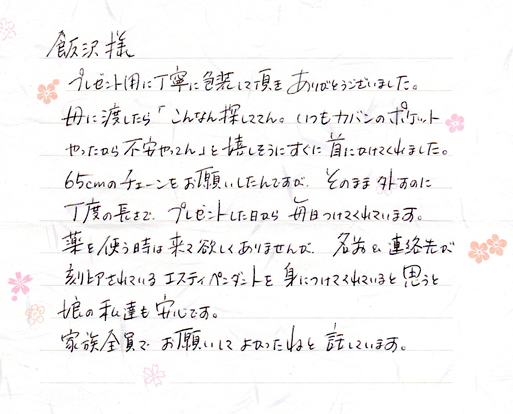 飯沢様
プレゼント用に丁寧に包装して頂き ありがとうございました。
母に渡したら「こんなん探しててん。いつもカバンのポケット
やったから不安やってん」と嬉しそうにすぐに首にかけてくれました。
65cmのチェーンをお願いしたんですが、そのまま外すのに
丁度の長さで、プレゼントした日から毎日つけてくれています。
薬を使う時は来て欲しくありませんが、名前と連絡先が
刻印されているエスティペンダントを身につけてくれていると思うと
娘の私達も安心です。
家族全員でお願いしてよかったねと話しています。